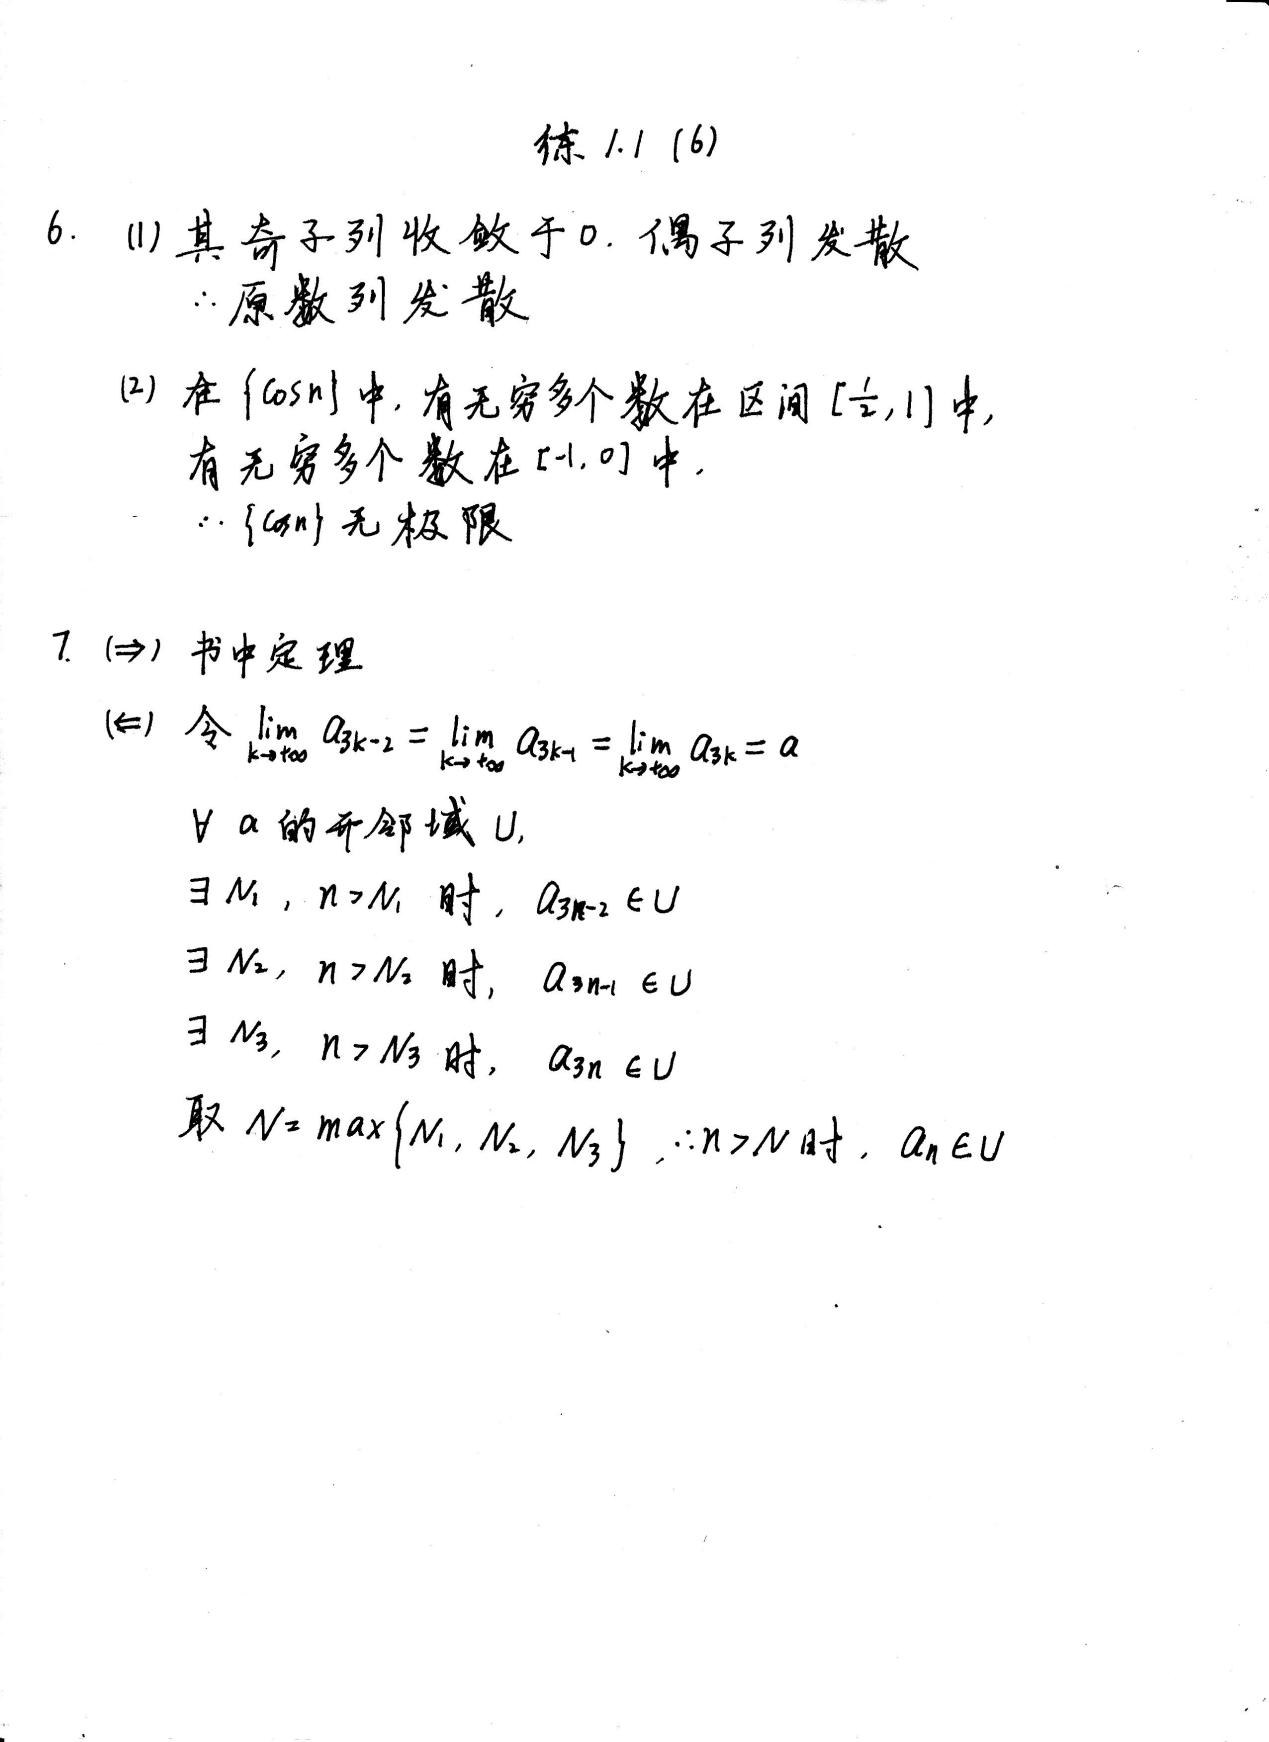 练 1.1 (6)
6. (1) 其奇子列收敛于0. 偶子列发散
∴原数列发散
(2) 在{cosn}中, 有无穷多个数在区间[½, 1]中,
有无穷多个数在[-1, 0]中.
∴{cosn}无极限
7. (⇒) 书中定理
(⇐) 令 lim_{k→+∞} a_{3k-2} = lim_{k→+∞} a_{3k-1} = lim_{k→+∞} a_{3k} = a
∀ a 的开邻域 U,
∃ N₁, n>N₁ 时, a_{3n-2} ∈ U
∃ N₂, n>N₂ 时, a_{3n-1} ∈ U
∃ N₃, n>N₃ 时, a_{3n} ∈ U
取 N = max{N₁, N₂, N₃}, ∴n>N时, a_n∈U